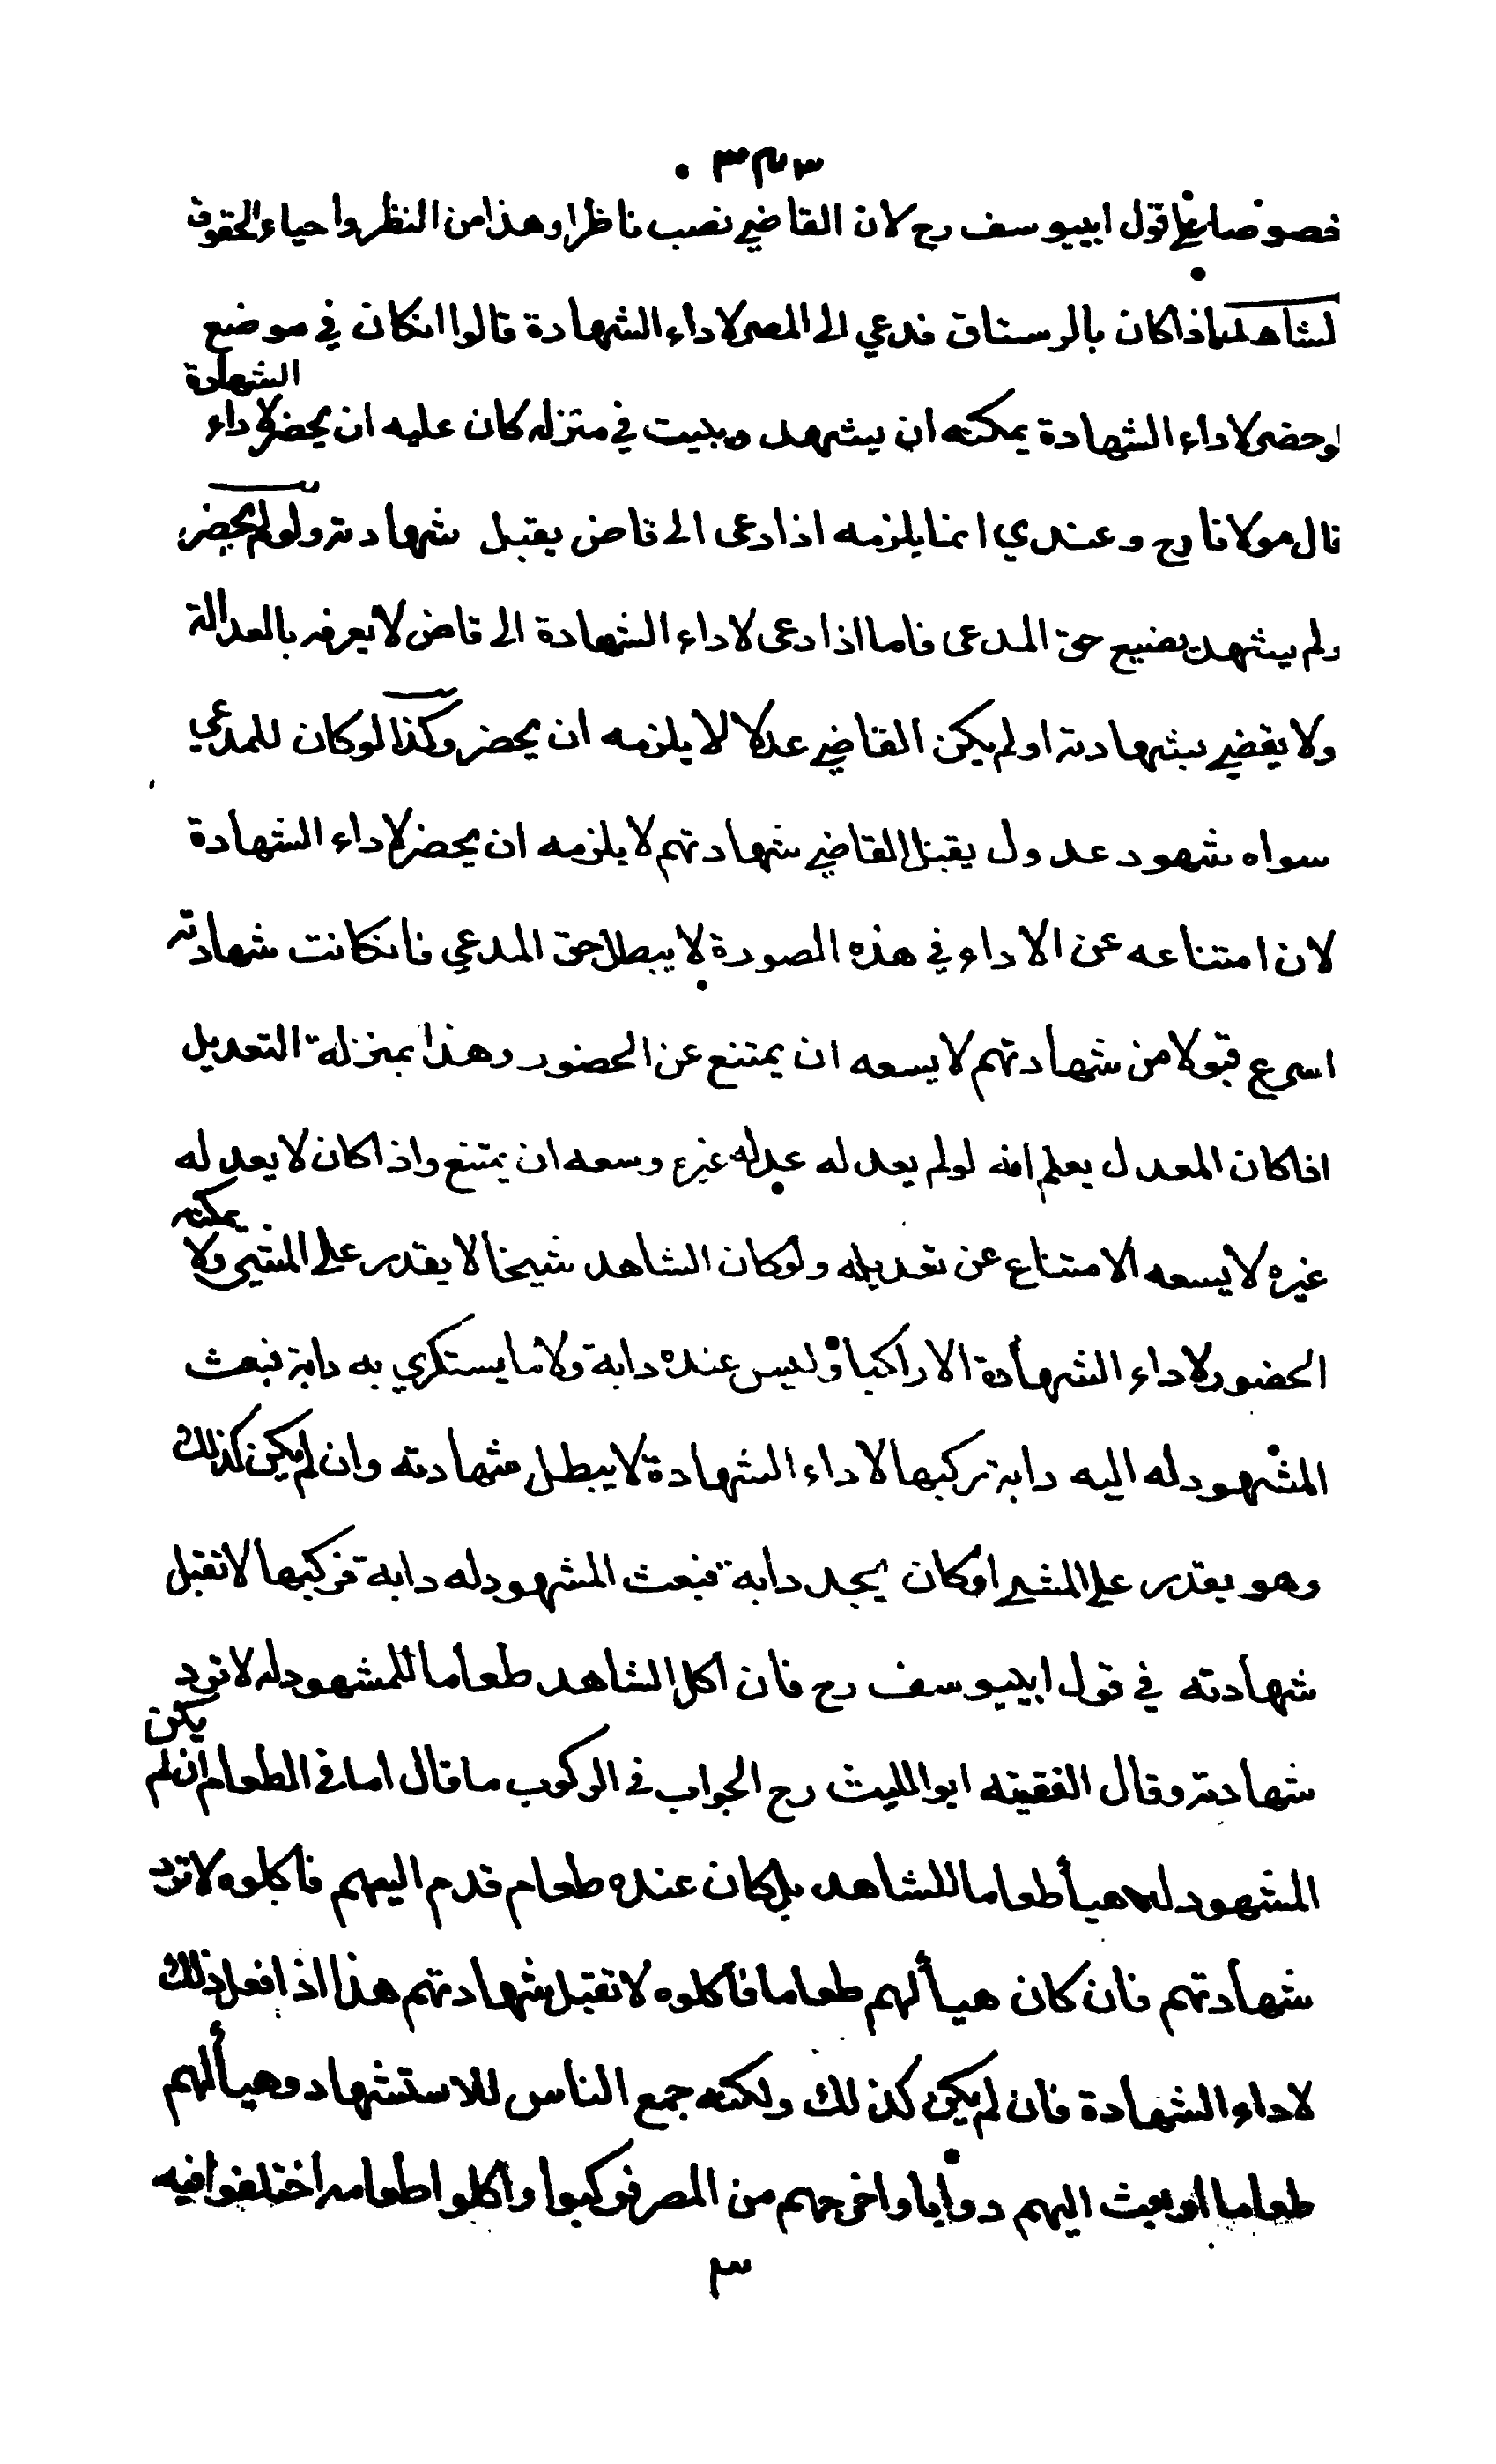 ٣٤٣
خصوصا على قول ابييوسف رح لان القاضي نصب ناظرا وهذا من النظر واحياء الحقوق
لشاهد اذا كان بالرستاق فدعي الى المصر لاداء الشهادة قالوا انكان في موضع
لوحضر لاداء الشهادة يمكنه ان يشهد ويبيت في منزله كان عليه ان يحضر لاداء الشهادة
قال مولانا رح وعندي انما يلزمه اذا دعى الى قاض يقبل شهادته ولو لم يحضر
ولم يشهد يضيع حق المدعى فاما اذا دعى لاداء الشهادة الى قاض لا يعرفه بالعدالة
ولا يقضي بشهادته او لم يكن القاضي عدلا لا يلزمه ان يحضر وكذا لو كان للمدعي
سواه شهود عدول يقبل القاضي شهادتهم لا يلزمه ان يحضر لاداء الشهادة
لان امتناعه عن الاداء في هذه الصورة لا يبطل حق المدعي فانكانت شهادته
اسرع قبولا من شهادتهم لا يسعه ان يمتنع عن الحضور وهذا بمنزلة التعديل
اذا كان المعدل يعلم انه لو لم يعدله عدله غيره وسعه ان يمتنع واذا كان لا يعدله
غيره لا يسعه الامتناع عن تعديله ولو كان الشاهد شيخا لا يقدر على المشي ولا يمكنه
الحضور لاداء الشهادة الا راكبا وليس عنده دابة ولا ما يستكري به دابة فبعث
المشهود له اليه دابة تركبها لاداء الشهادة لا يبطل شهادته وان لم يكن كذلك
وهو يقدر على المشي او كان يجد دابة فبعث المشهود له دابة فركبها لا تقبل
شهادته في قول ابييوسف رح فان اكل الشاهد طعاما للمشهود له لا ترد
شهادته وقال الفقيه ابو الليث رح الجواب في الركوب ما قال اما في الطعام ان لم يكن
المشهود له هيأ طعاما للشاهد بل كان عنده طعام قدم اليهم فاكلوه لا ترد
شهادتهم فان كان هيأ لهم طعاما فاكلوه لا تقبل شهادتهم هذا اذا فعل ذلك
لاداء الشهادة فان لم يكن كذلك ولكنه جمع الناس للاستشهاد وهيأ لهم
طعاما او بعث اليهم دوابا واخرجهم من المصر فركبوا واكلوا طعامه اختلفوا فيه
٣